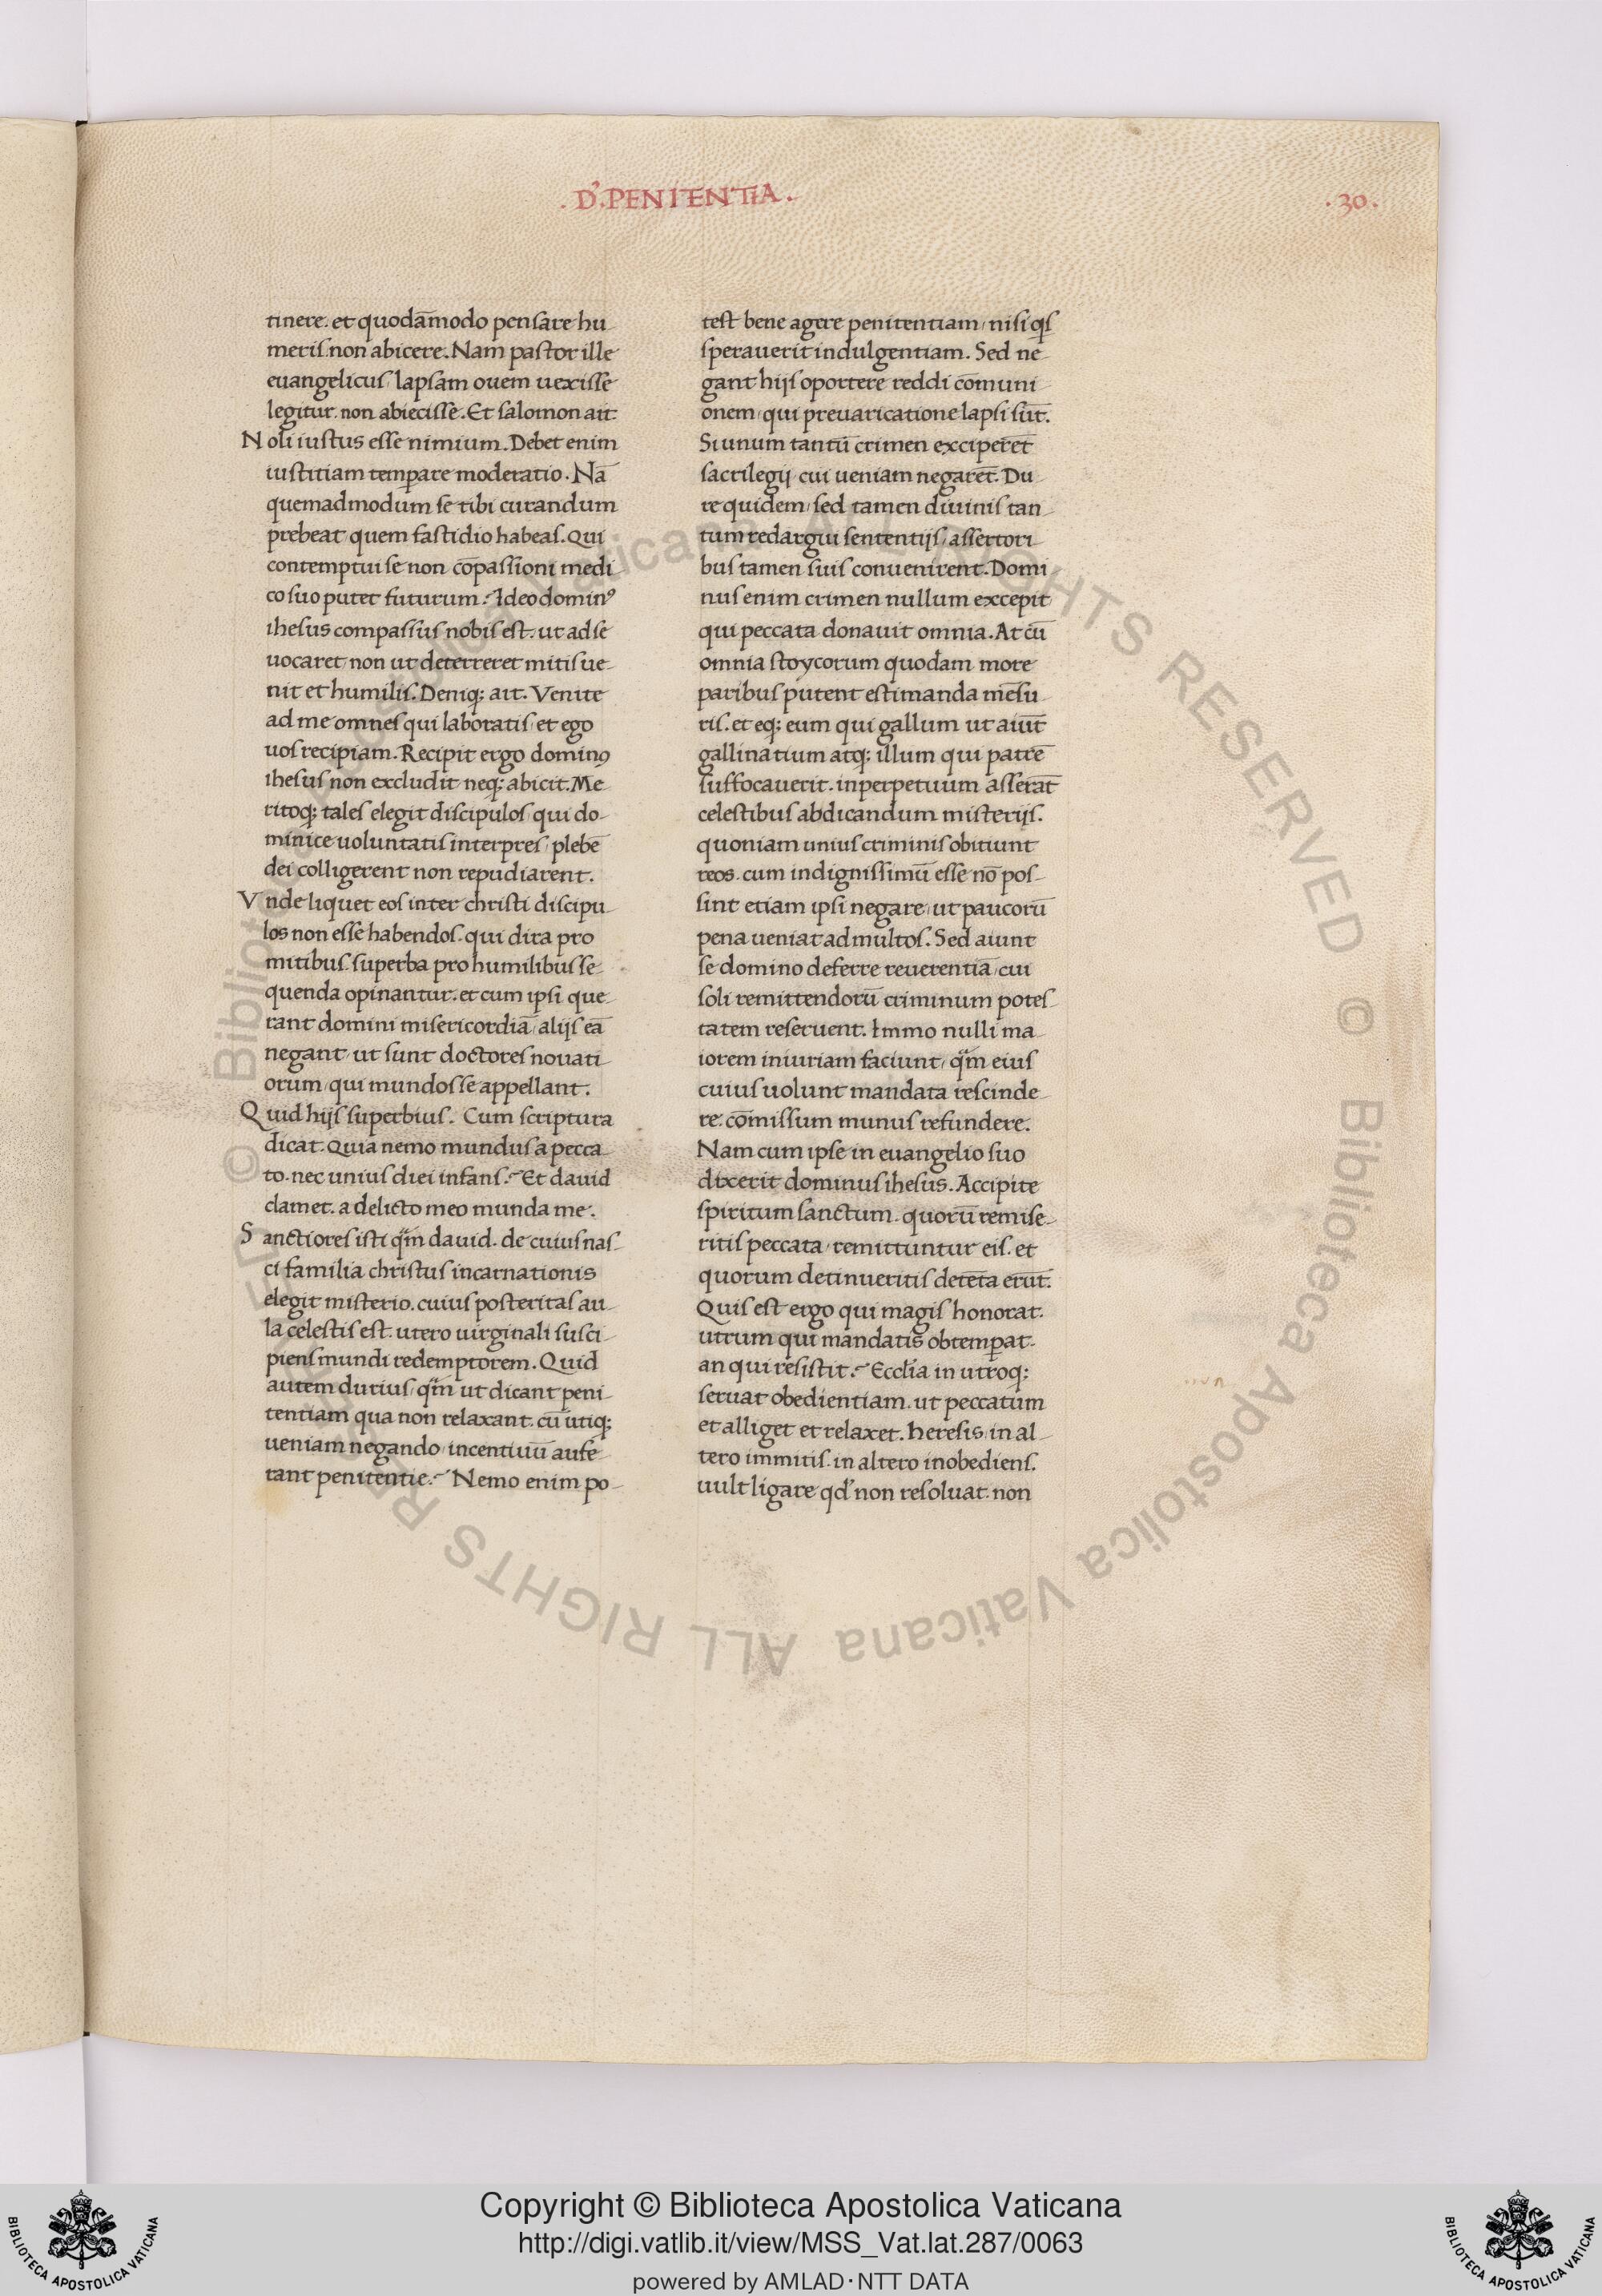 .D'.PENITENTIA.
.30.
tinere. et quodāmodo pensare hu-
meris. non abicere. Nam pastor ille
euangelicus, lapsam ouem uexisse
legitur. non abiecisse. Et salomon ait.
Noli iustus esse nimium. Debet enim
iustitiam temꝑare moderatio. Nā
quemadmodum se tibi curandum
prebeat quem fastidio habeas. Qui
contemptui se non cōpassioni medi-
co suo putet futurum? Ideo dominꝰ
ihesus compassus nobis est. ut ad se
uocaret, non ut deterreret mitis ue-
nit et humilis. Deniq; ait. Venite
ad me omnes qui laboratis, et ego
uos recipiam. Recipit ergo dominꝰ
ihesus non excludit, neq; abicit. Me-
ritoq; tales elegit discipulos, qui do-
minice uoluntatis interpres, plebē
dei colligerent non repudiarent.
Vnde liquet eos inter christi discipu-
los non esse habendos. qui dira pro
mitibus. superba pro humilibus se-
quenda opinantur. et cum ipsi que-
rant domini misericordiā, alijs eā
negant, ut sunt doctores nouati-
orum, qui mundos se appellant.
Quid hijs superbius. Cum scriptura
dicat. Quia nemo mundus a pecca-
to. nec unius diei infans? Et dauid
clamet. a delicto meo munda me.
Sanctiores isti qm̄ dauid. de cuius nas-
ci familia christus incarnationis
elegit misterio. cuius posteritas au-
la celestis est. utero uirginali susci-
piens mundi redemptorem. Quid
autem durius, qm̄ ut dicant peni-
tentiam qua non relaxant. cū utiq;
ueniam negando, incentiuū aufe-
rant penitentie? Nemo enim po-
test bene agere penitentiam, nisi qs̄
sperauerit indulgentiam. Sed ne-
gant hijs oportere reddi cōmuni-
onem, qui preuaricatione lapsi sūt.
Si unum tantū crimen exciperēt
sacrilegij, cui ueniam negarēt. Du-
re quidem, sed tamen diuinis tan-
tum redargui sententijs, assertori-
bus tamen suis conuenirent. Domi-
nus enim crimen nullum excepit
qui peccata donauit omnia. At cū
omnia stoycorum quodam more
paribus putent estimanda mēsu-
ris. et eq; eum qui gallum ut aiūt
gallinatium atq; illum qui patrē
suffocauerit. inperpetuum asserāt
celestibus abdicandum misterijs.
quoniam unius criminis obitiunt
reos. cum indignissimū esse nō pos-
sint etiam ipsi negare, ut paucorū
pena ueniat ad multos. Sed aiunt
se domino deferre reuerentiā, cui
soli remittendorū criminum potes-
tatem reseruent. Immo nulli ma-
iorem iniuriam faciunt, qm̄ eius
cuius uolunt mandata rescinde-
re. cōmissum munus refundere.
Nam cum ipse in euangelio suo
dixerit dominus ihesus. Accipite
spiritum sanctum. quorū remise-
ritis peccata, remittuntur eis. et
quorum detinueritis detēta erūt.
Quis est ergo qui magis honorat.
utrum qui mandatis obtemꝑat.
an qui resistit? Eccl̄ia in utroq;
seruat obedientiam. ut peccatum
et alliget et relaxet. heresis, in al-
tero immitis. in altero inobediens.
uult ligare qd̓ non resoluat. non
© Biblioteca Apostolica Vaticana ALL RIGHTS RESERVED
© Biblioteca Apostolica Vaticana ALL RIGHTS RESERVED
Copyright © Biblioteca Apostolica Vaticana
http://digi.vatlib.it/view/MSS_Vat.lat.287/0063
powered by AMLAD·NTT DATA
BIBLIOTECA APOSTOLICA VATICANA
BIBLIOTECA APOSTOLICA VATICANA